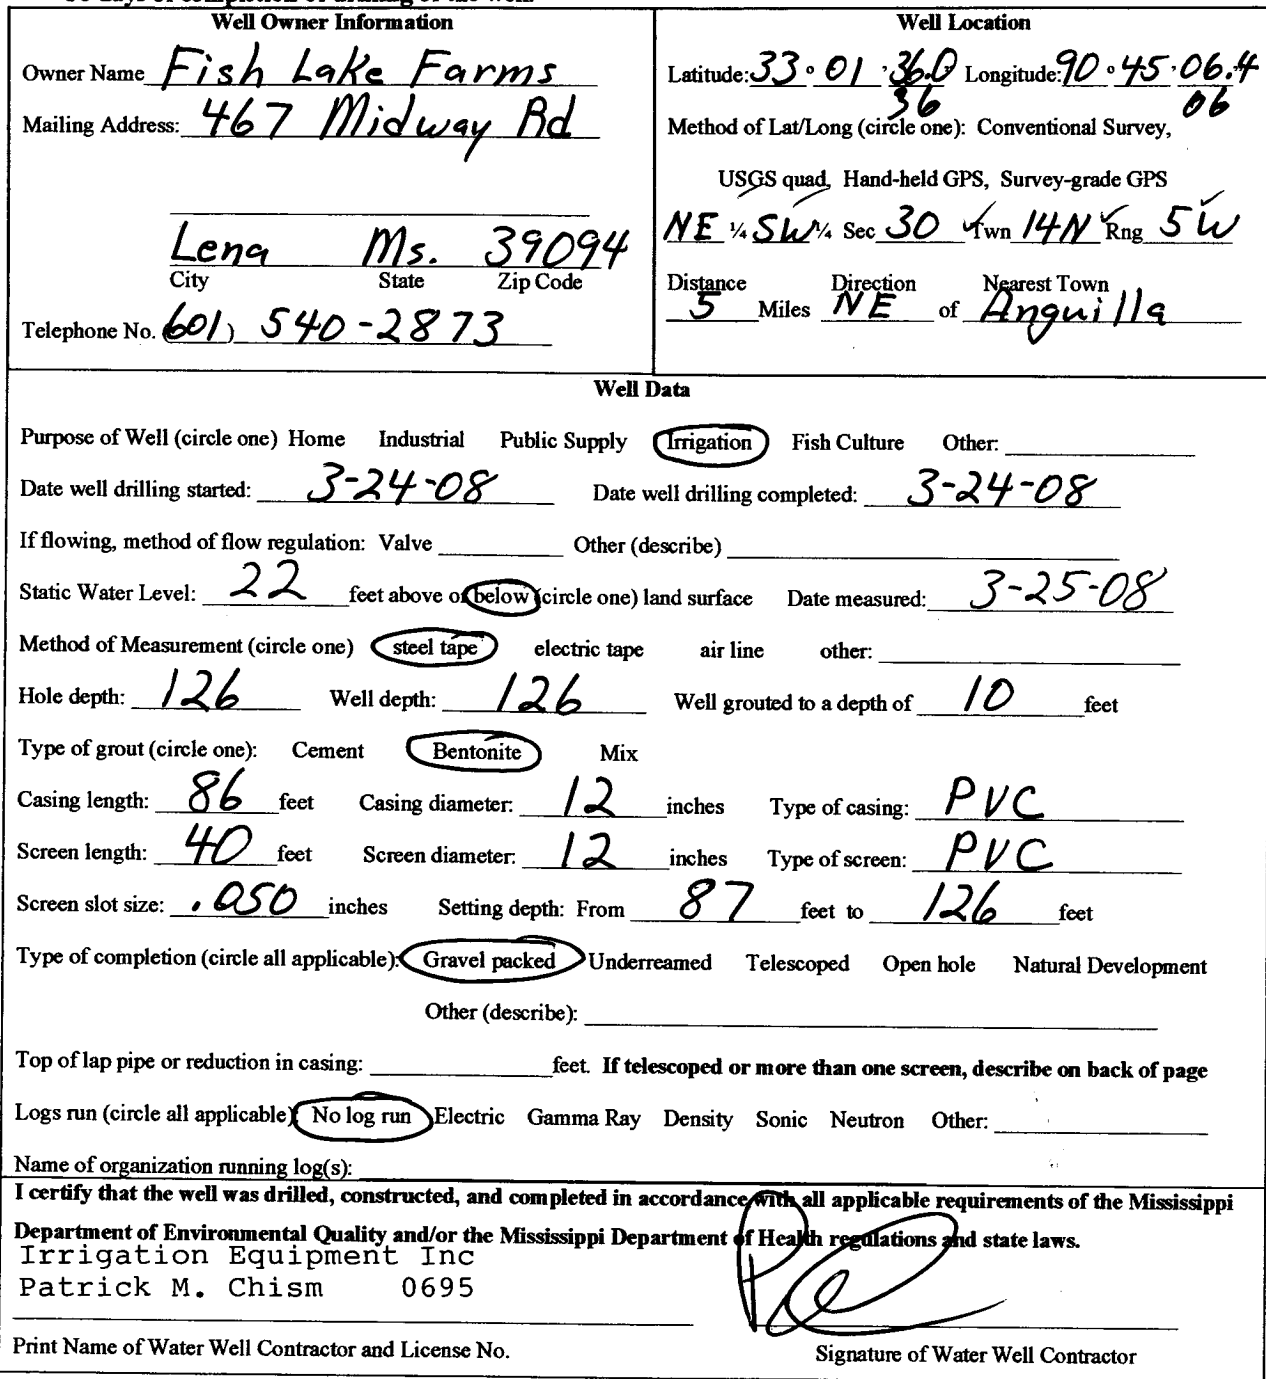 30 days of completion of drilling of the well.
Well Owner Information
Owner Name Fish Lake Farms
Mailing Address: 467 Midway Rd
Lena Ms. 39094
City State Zip Code
Telephone No. (601) 540-2873
Well Location
Latitude: 33 ° 01 ' 36.0 Longitude: 90 ° 45 ' 06.4
36 06
Method of Lat/Long (circle one): Conventional Survey,
USGS quad, Hand-held GPS, Survey-grade GPS
NE ¼ SW ¼ Sec 30 Twn 14N Rng 5W
Distance Direction Nearest Town
5 Miles NE of Anguilla
Well Data
Purpose of Well (circle one) Home Industrial Public Supply Irrigation Fish Culture Other:
Date well drilling started: 3-24-08 Date well drilling completed: 3-24-08
If flowing, method of flow regulation: Valve Other (describe)
Static Water Level: 22 feet above or below (circle one) land surface Date measured: 3-25-08
Method of Measurement (circle one) steel tape electric tape air line other:
Hole depth: 126 Well depth: 126 Well grouted to a depth of 10 feet
Type of grout (circle one): Cement Bentonite Mix
Casing length: 86 feet Casing diameter: 12 inches Type of casing: PVC
Screen length: 40 feet Screen diameter: 12 inches Type of screen: PVC
Screen slot size: .050 inches Setting depth: From 87 feet to 126 feet
Type of completion (circle all applicable): Gravel packed Underreamed Telescoped Open hole Natural Development
Other (describe):
Top of lap pipe or reduction in casing: feet. If telescoped or more than one screen, describe on back of page
Logs run (circle all applicable) No log run Electric Gamma Ray Density Sonic Neutron Other:
Name of organization running log(s):
I certify that the well was drilled, constructed, and completed in accordance with all applicable requirements of the Mississippi
Department of Environmental Quality and/or the Mississippi Department of Health regulations and state laws.
Irrigation Equipment Inc
Patrick M. Chism 0695
Print Name of Water Well Contractor and License No.
Signature of Water Well Contractor